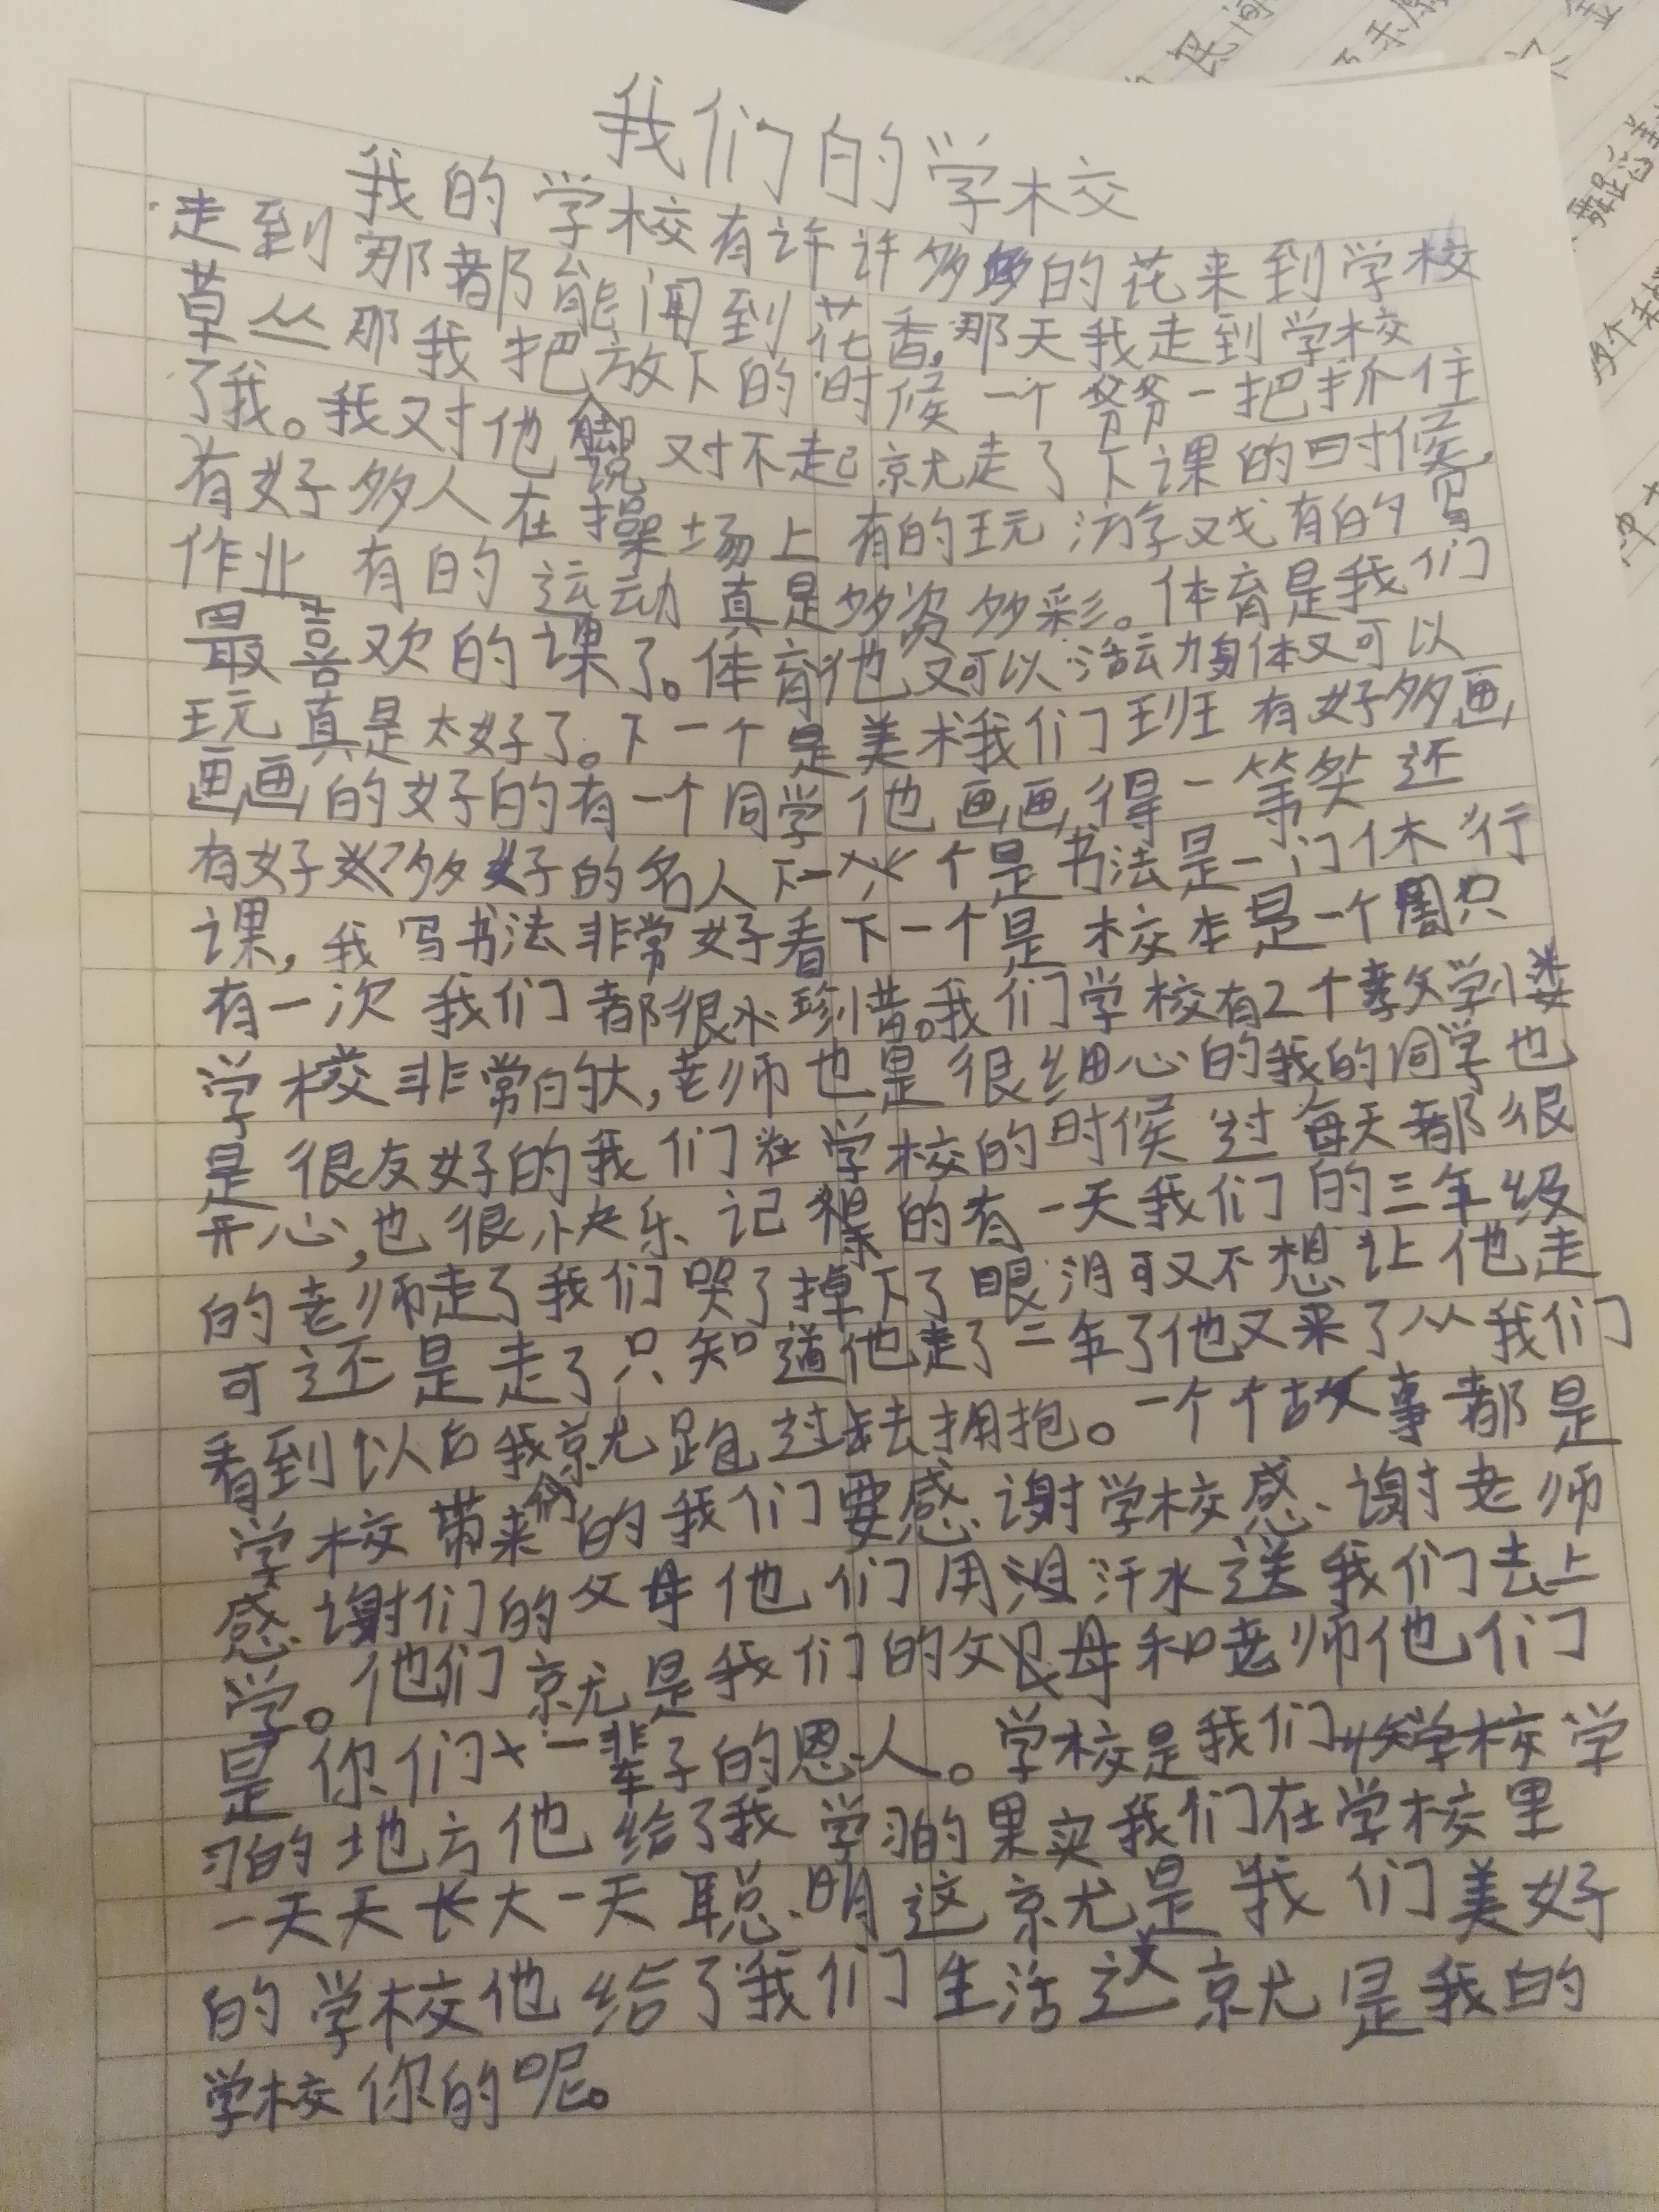 我们的学校
我的学校有许许多多的花来到学校
走到那都能闻到花香,那天我走到学校
草丛那我把脚放下的时候一个 一把抓住
了我。我对他说对不起就走了下课的时候,
有好多人在操场上有的玩游戏有的写
作业有的运动真是多姿多彩。体育是我们
最喜欢的课了。体育他又可以活动身体又可以
玩真是太好了。下一个是美术我们班有好多画
画画的好的有一个同学他画画得一等奖还
有好多好的名人下一个是书法是一门休行
课,我写书法非常好看下一个是校本是一个周只
有一次我们都很珍惜。我们学校有2个教学楼
学校非常的大,老师也是很细心的我的同学也
是很友好的我们在学校的时候过每天都很
开心,也很快乐记得的有一天我们的三年级
的老师走了我们哭了掉下了眼泪可又不想让他走
可还是走了只知道他走了二年了他又来了从我们
看到以后我就跑过去拥抱。一个个故事都是
学校带来们的我们要感谢学校感谢老师
感谢们的父母他们用汗水送我们去上
学。他们就是我们的父母和老师他们
是你们一辈子的恩人。学校是我们学校学
习的地方他给了我学习的果实我们在学校里
一天天长大一天聪明这就是我们美好
的学校他给了我们生活这就是我的
学校你的呢。
民间